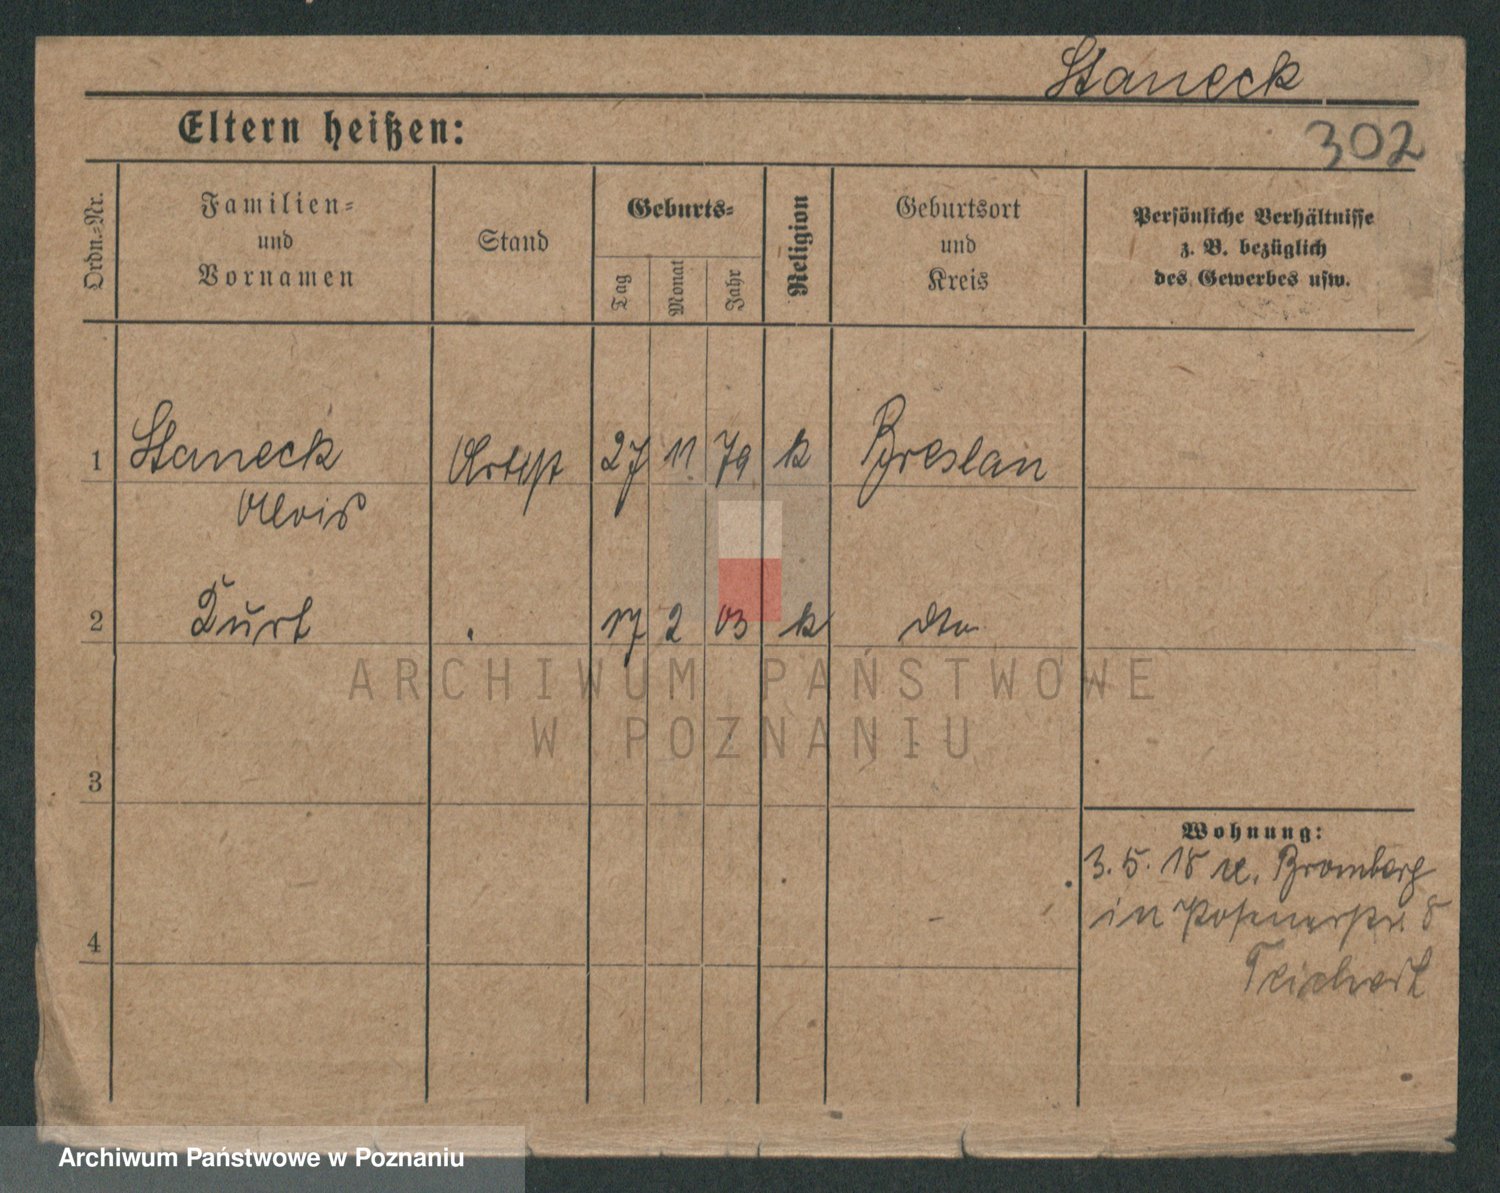 Staneck
302
Eltern heißen:
Ordn.=Nr.
Familien=
und
Vornamen
Stand
Geburts=
Tag
Monat
Jahr
Religion
Geburtsort
und
Kreis
Persönliche Verhältnisse
z. B. bezüglich
des Gewerbes usw.
1 Staneck Artist 27 11 79 k Breslau
Alois
2 Kurt . 17 2 03 k dto
3
4
Wohnung:
3. 5. 18 n. Bromberg
in Posenerstr. 8
Teichert
ARCHIWUM PAŃSTWOWE
W POZNANIU
Archiwum Państwowe w Poznaniu